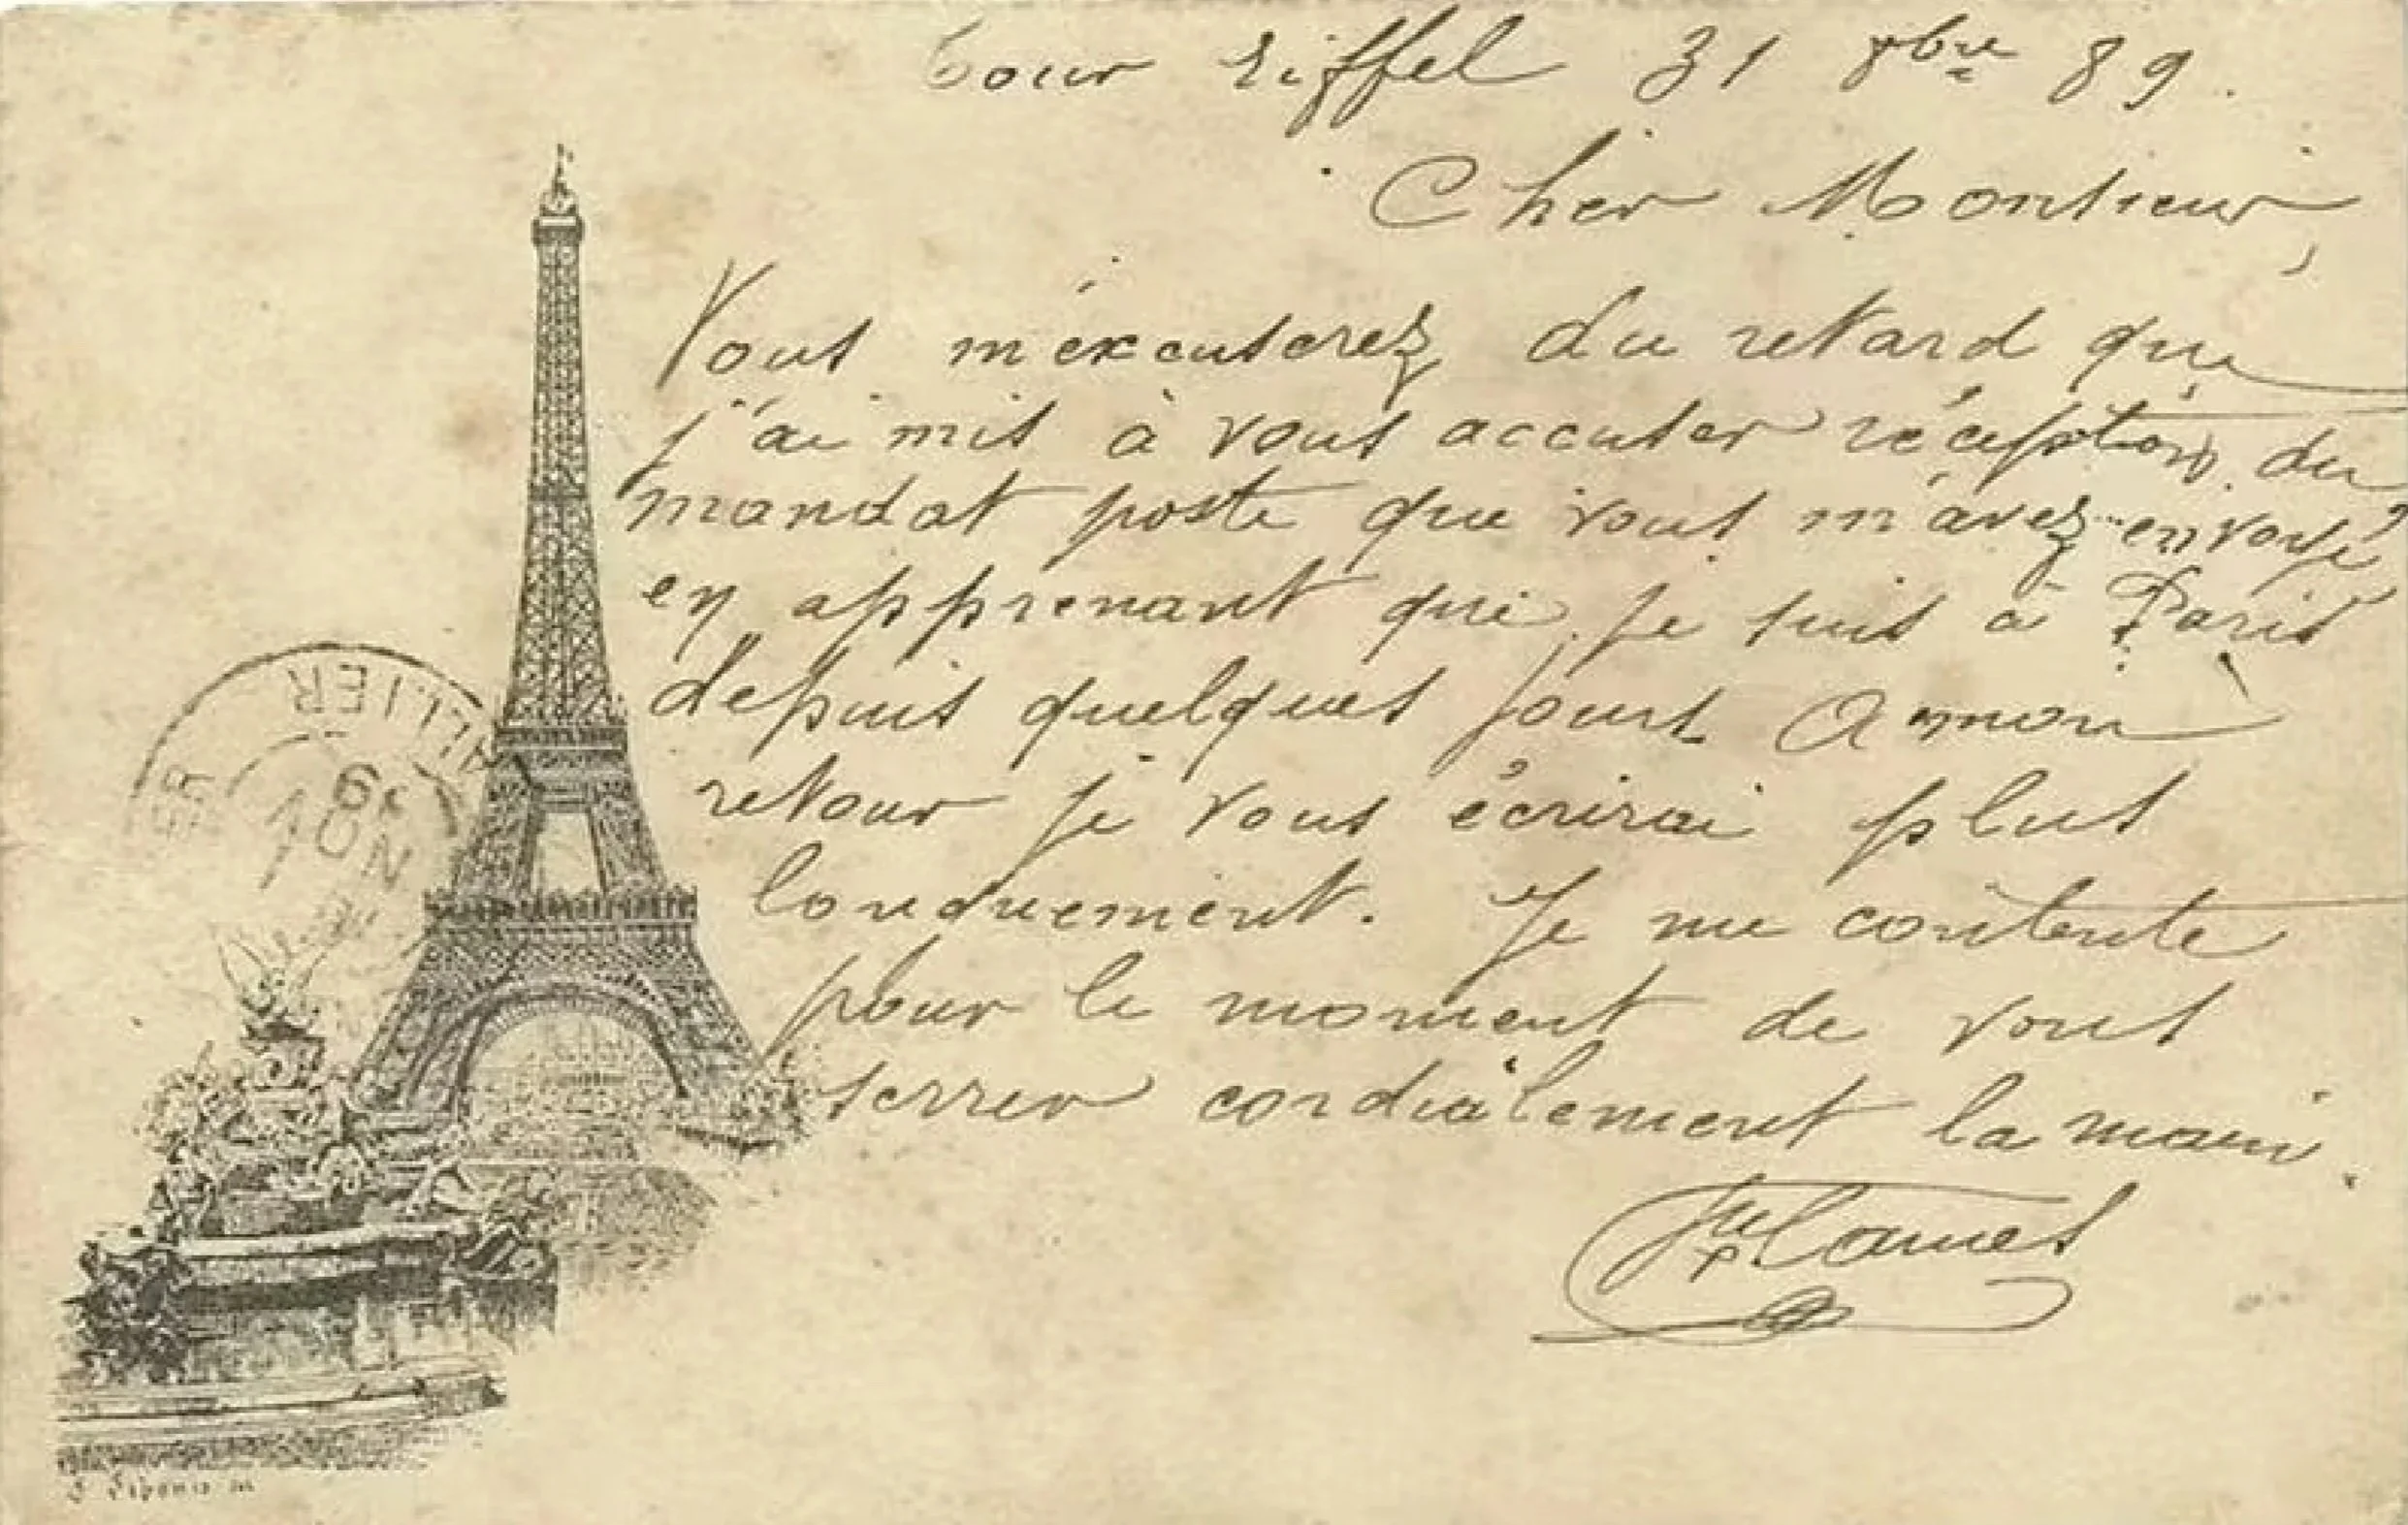 Tour Eiffel 31 8bre 89.
Cher Monsieur,
Vous m'éxcuserez du retard que
j'ai mis à vous accuser réception du
mandat poste que vous m'avez envoyé
en apprenant que je suis à Paris
depuis quelques jours A mon
retour je vous écrirai plus
longuement. Je me contente
pour le moment de vous
serrer cordialement la main.
ALLIER
NOV
89